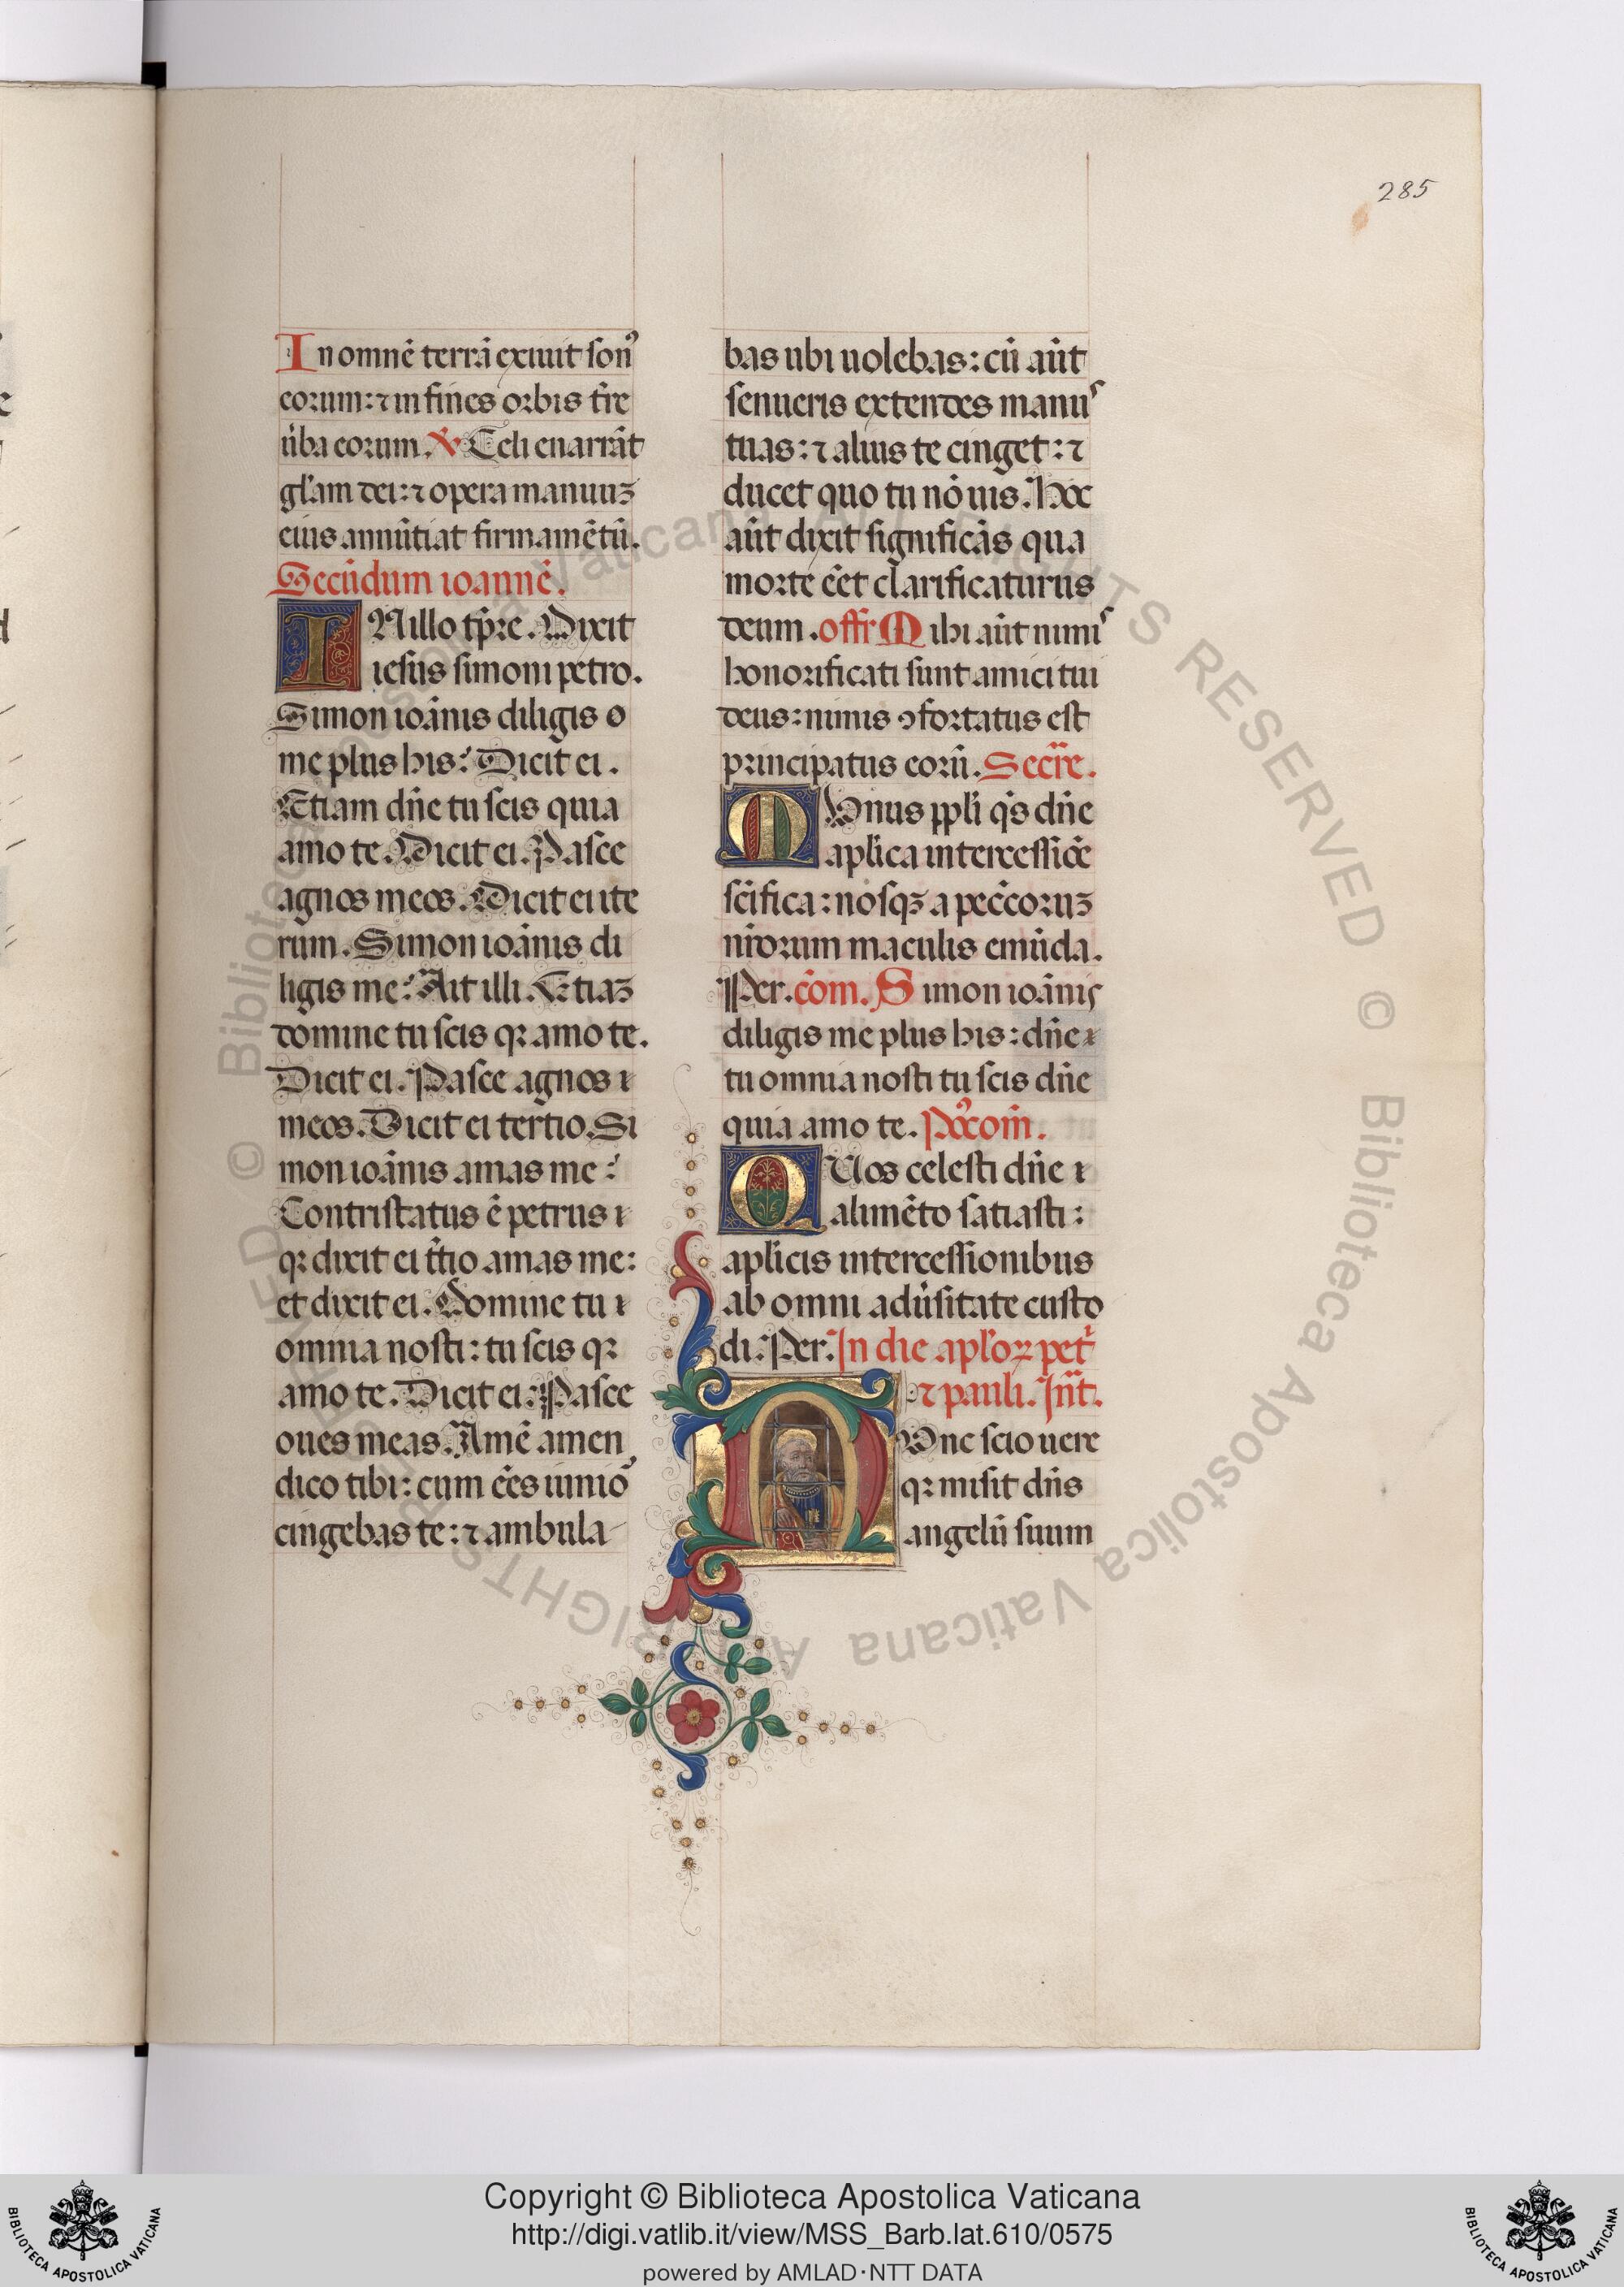 285
In omnē terrā exiuit son⁹
eorum: ⁊ in fines orbis tr̄e
ūba eorum. ℣ Celi enarrāt
gl̄am dei: ⁊ opera manuuꝫ
eius annūtiat firmamētū.
Secūdum ioannē.
IN illo tp̄re. Dixit
iesus simoni petro.
Simon ioānis diligis o
me plus his? Dicit ei.
Etiam dn̄e tu scis quia
amo te. Dicit ei. Pasce
agnos meos. Dicit ei ite
rum. Simon ioānis di
ligis me? Ait illi. Etiaꝫ
domine tu scis qꝛ amo te.
Dicit ei. Pasce agnos ı
meos. Dicit ei tertio. Si
mon ioānis amas me?
Contristatus ē petrus ı
qꝛ dixit ei tt̄io amas me:
et dixit ei. Domine tu ı
omnia nosti: tu scis qꝛ
amo te. Dicit ei. Pasce
oues meas. Amē amen
dico tibi: cum ēēs iunio⁹
cingebas te: ⁊ ambula
bas ubi uolebas: cū aūt
senueris extendes manu^s
tuas: ⁊ alius te cinget: ⁊
ducet quo tu nō uis. Hoc
aūt dixit significās qua
morte ēēt clarificaturus
deum. offr Mihi aūt nimi^s
honorificati sunt amici tui
deus: nimis ꝯfortatus est
principatus eorū. Secr̄e.
MUnus ppl̄i qs̄ dn̄e
apl̄ica intercessiōe
sc̄ifica: nosqꝫ a pecc̄oruꝫ
nr̄orum maculis emūda.
Per. cōm. Simon ioānis
diligis me plus his: dn̄e ı
tu omnia nosti tu scis dn̄e
quia amo te. P⁹com̄.
QUos celesti dn̄e ı
alimēto satiasti:
apl̄icis intercessionibus
ab omni adūsitate custo
di. Per. In die apl̄oꝝ pet^r
⁊ pauli. Int̄.
NUnc scio uere
qꝛ misit dn̄s
angelū suum
© Biblioteca Apostolica Vaticana ALL RIGHTS RESERVED © Biblioteca Apostolica Vaticana ALL RIGHTS RESERVED
Copyright © Biblioteca Apostolica Vaticana
http://digi.vatlib.it/view/MSS_Barb.lat.610/0575
powered by AMLAD·NTT DATA
BIBLIOTECA APOSTOLICA VATICANA
BIBLIOTECA APOSTOLICA VATICANA